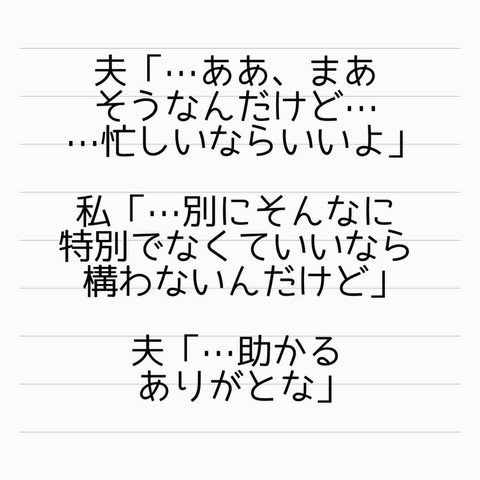 夫「…ああ、まあ
そうなんだけど…
…忙しいならいいよ」
私「…別にそんなに
特別でなくていいなら
構わないんだけど」
夫「…助かる
ありがとな」